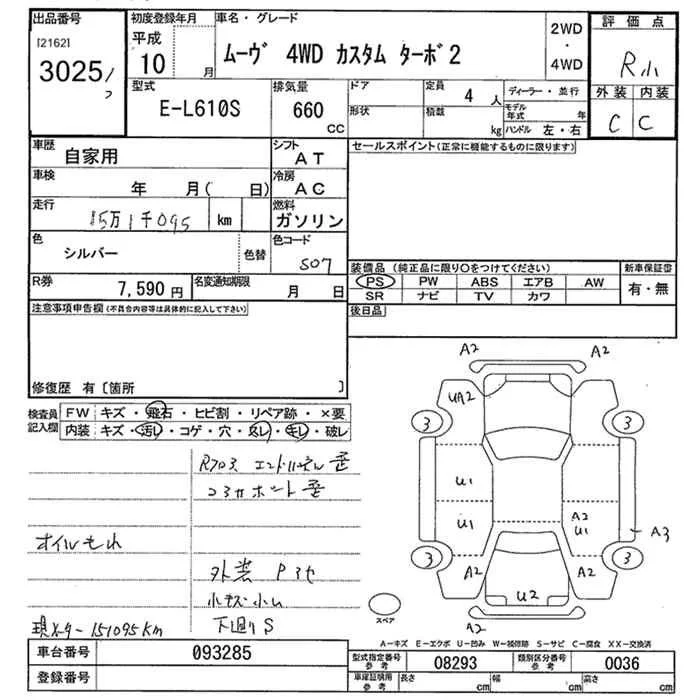 出品番号
[2162]
3025
初度登録年月
平成
10 月
車名・グレード
ムーヴ 4WD カスタム ターボ2
2WD
・
4WD
評価点
R小
外装 内装
C C
型式
E-L610S
排気量
660
cc
ドア
形状
定員
4 人
積載
kg
ディーラー・並行
モデル年式 年
ハンドル 左・右
車歴
自家用
シフト
AT
車検
年 月( 日)
冷房
AC
走行
15万1千095 km
燃料
ガソリン
色
シルバー
色替
色コード
S07
R券
7,590 円
名変通知期限
月 日
セールスポイント(正常に機能するものに限ります)
装備品 (純正品に限り○をつけてください)
PS PW ABS エアB AW
SR ナビ TV カワ
新車保証書
有・無
後日品
注意事項申告欄(不具合内容等は具体的に記入して下さい)
修復歴 有 [箇所 ]
検査員
記入欄
FW キズ・飛石・ヒビ割・リペア跡・×要
内装 キズ・汚レ・コゲ・穴・スレ・キレ・破レ
コアサポート歪
オイルもれ
外装
小キズ小ム
下廻りS
現メーター151095Km
A2 A2
UA2
3 3
U1
U1
A2
U1
A3
3 3
A2 A2
U2
A2
スペア
A-キズ E-エクボ U-凹み W-補修跡 S-サビ C-腐食 XX-交換済
車台番号
093285
登録番号
型式指定番号
参考
08293
類別区分番号
参考
0036
車庫証明用
参考
長さ cm
幅 cm
高さ cm